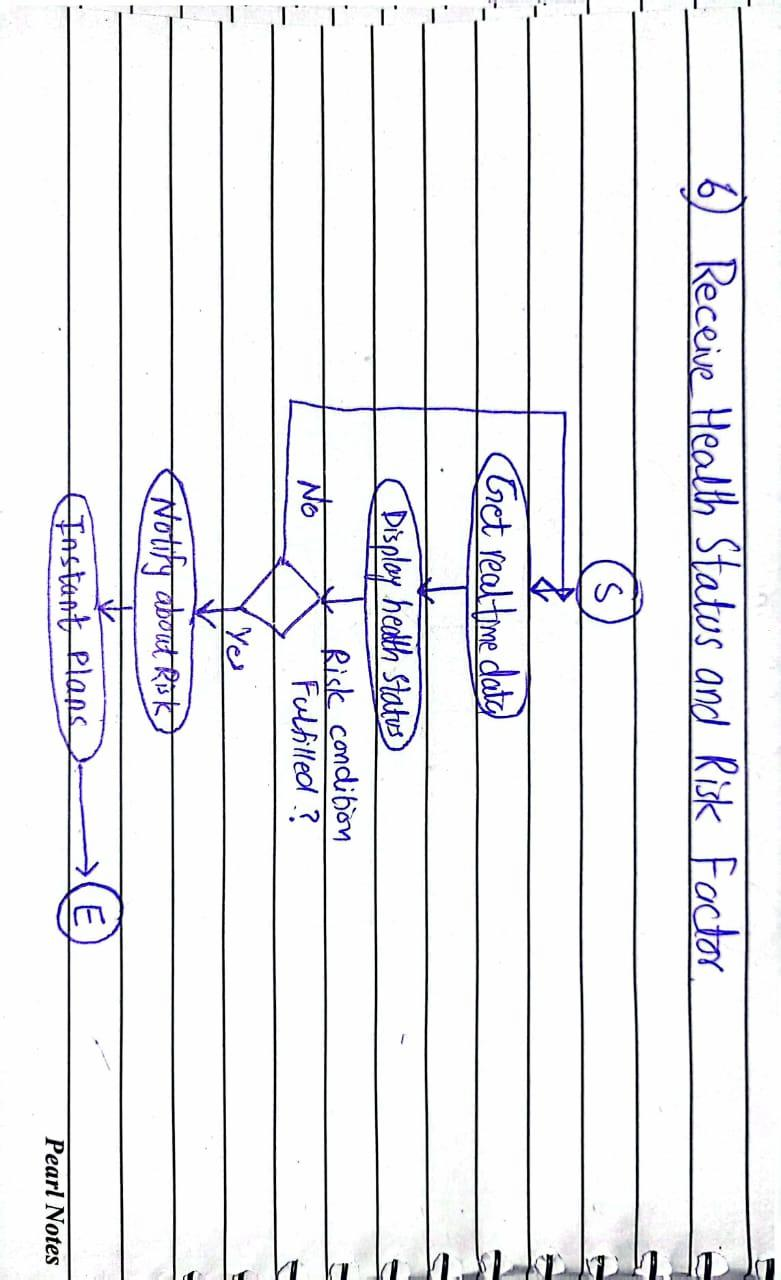 6) Receive Health Status and Risk Factor.
S
Get real time data
Display health status
Risk condition
Fulfilled ?
No
Yes
Notify about Risk
Instant Plans
E
Pearl Notes